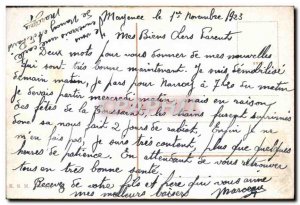 Mayence le 1er Novembre 1923
Mes Biens Chers Parents
Deux mots pour vous donner de mes nouvelles
qui sont très bonne maintenant. Je suis démobilisé
demain matin, je pars pour Nancy à 7h20 du matin
je serais partir mercredi matin mais en raison
des fêtes de la Toussaint, les trains surcupt suprimés
donc sa nous fait 2 jours de rabiot. Enfin je ne
m'en fais pas, je suis très content, plus que quelques
heures de patience. En attendant de vous retrouver
tous en très bonne santé.
Recevez de votre fils et frère qui vous aime
mes meilleurs baisers
Marcel